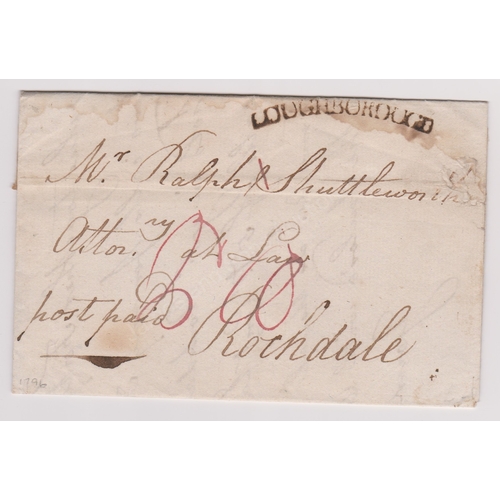 LOUGHBOROUGH
Mr. Ralph Shuttleworth
Attorny at Law
post paid Rochdale
1796